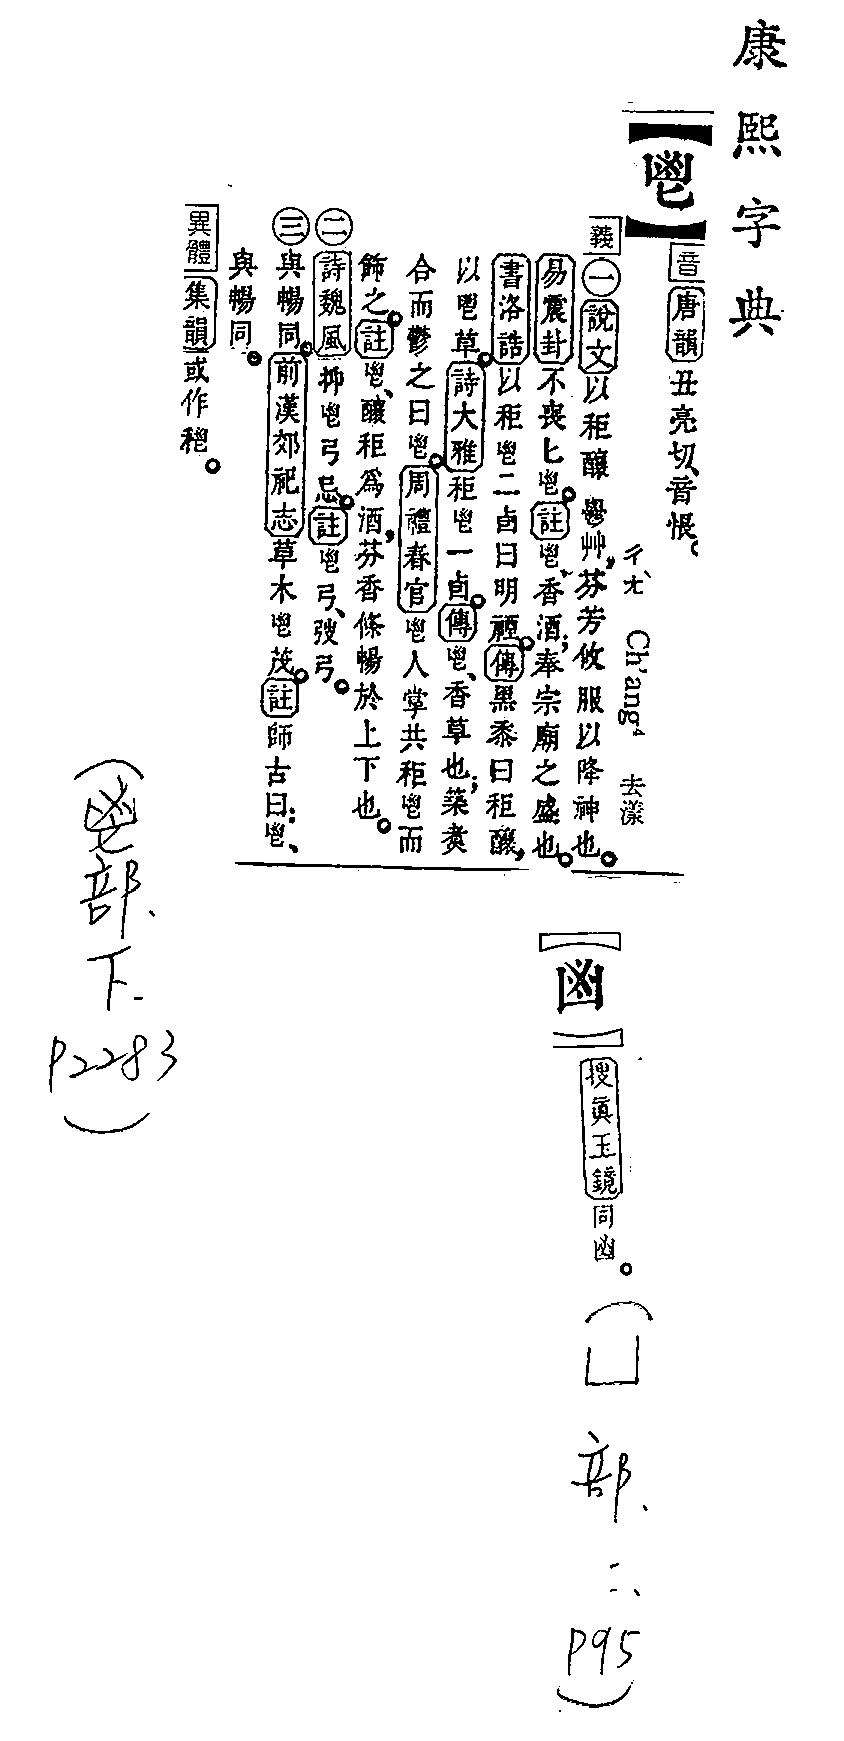 康熙字典
【鬯】
音 唐韻 丑亮切、音悵。
ㄔㄤˋ Ch'ang4 去漾
義 ㊀ 說文 以秬釀鬱艸，芬芳攸服以降神也。
易震卦 不喪匕鬯。註 鬯、香酒；奉宗廟之盛也。
書洛誥 以秬鬯二卣曰明禋。傳 黑黍曰秬，釀
以鬯草。詩大雅 秬鬯一卣。傳 鬯、香草也；築煑
合而鬱之曰鬯。周禮春官 鬯人掌共秬鬯而
飾之。註 鬯、釀秬爲酒，芬香條暢於上下也。
㊁ 詩魏風 抑鬯弓忌。註 鬯弓、弢弓。
㊂ 與暢同。前漢郊祀志 草木鬯茂。註 師古曰：鬯、
與暢同。
異體 集韻 或作𥠴。
(鬯部、下、P2283)
【𠚍】
搜眞玉鏡 同凶。
(凵部、二、P95)